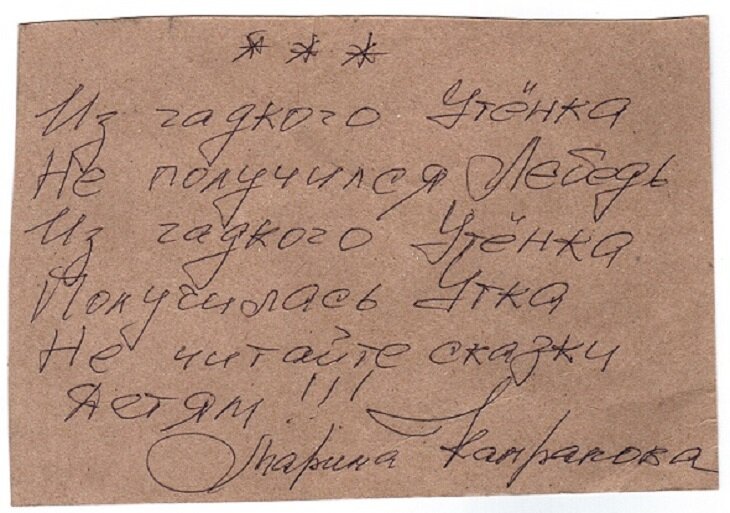 * * *
Из гадкого Утёнка
Не получился Лебедь
Из гадкого Утёнка
Получилась Утка
Не читайте сказки
Детям!!!
Марина